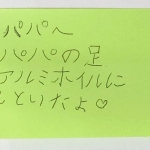 パパへ
パパの足
アルミホイルに
しといたよ♡